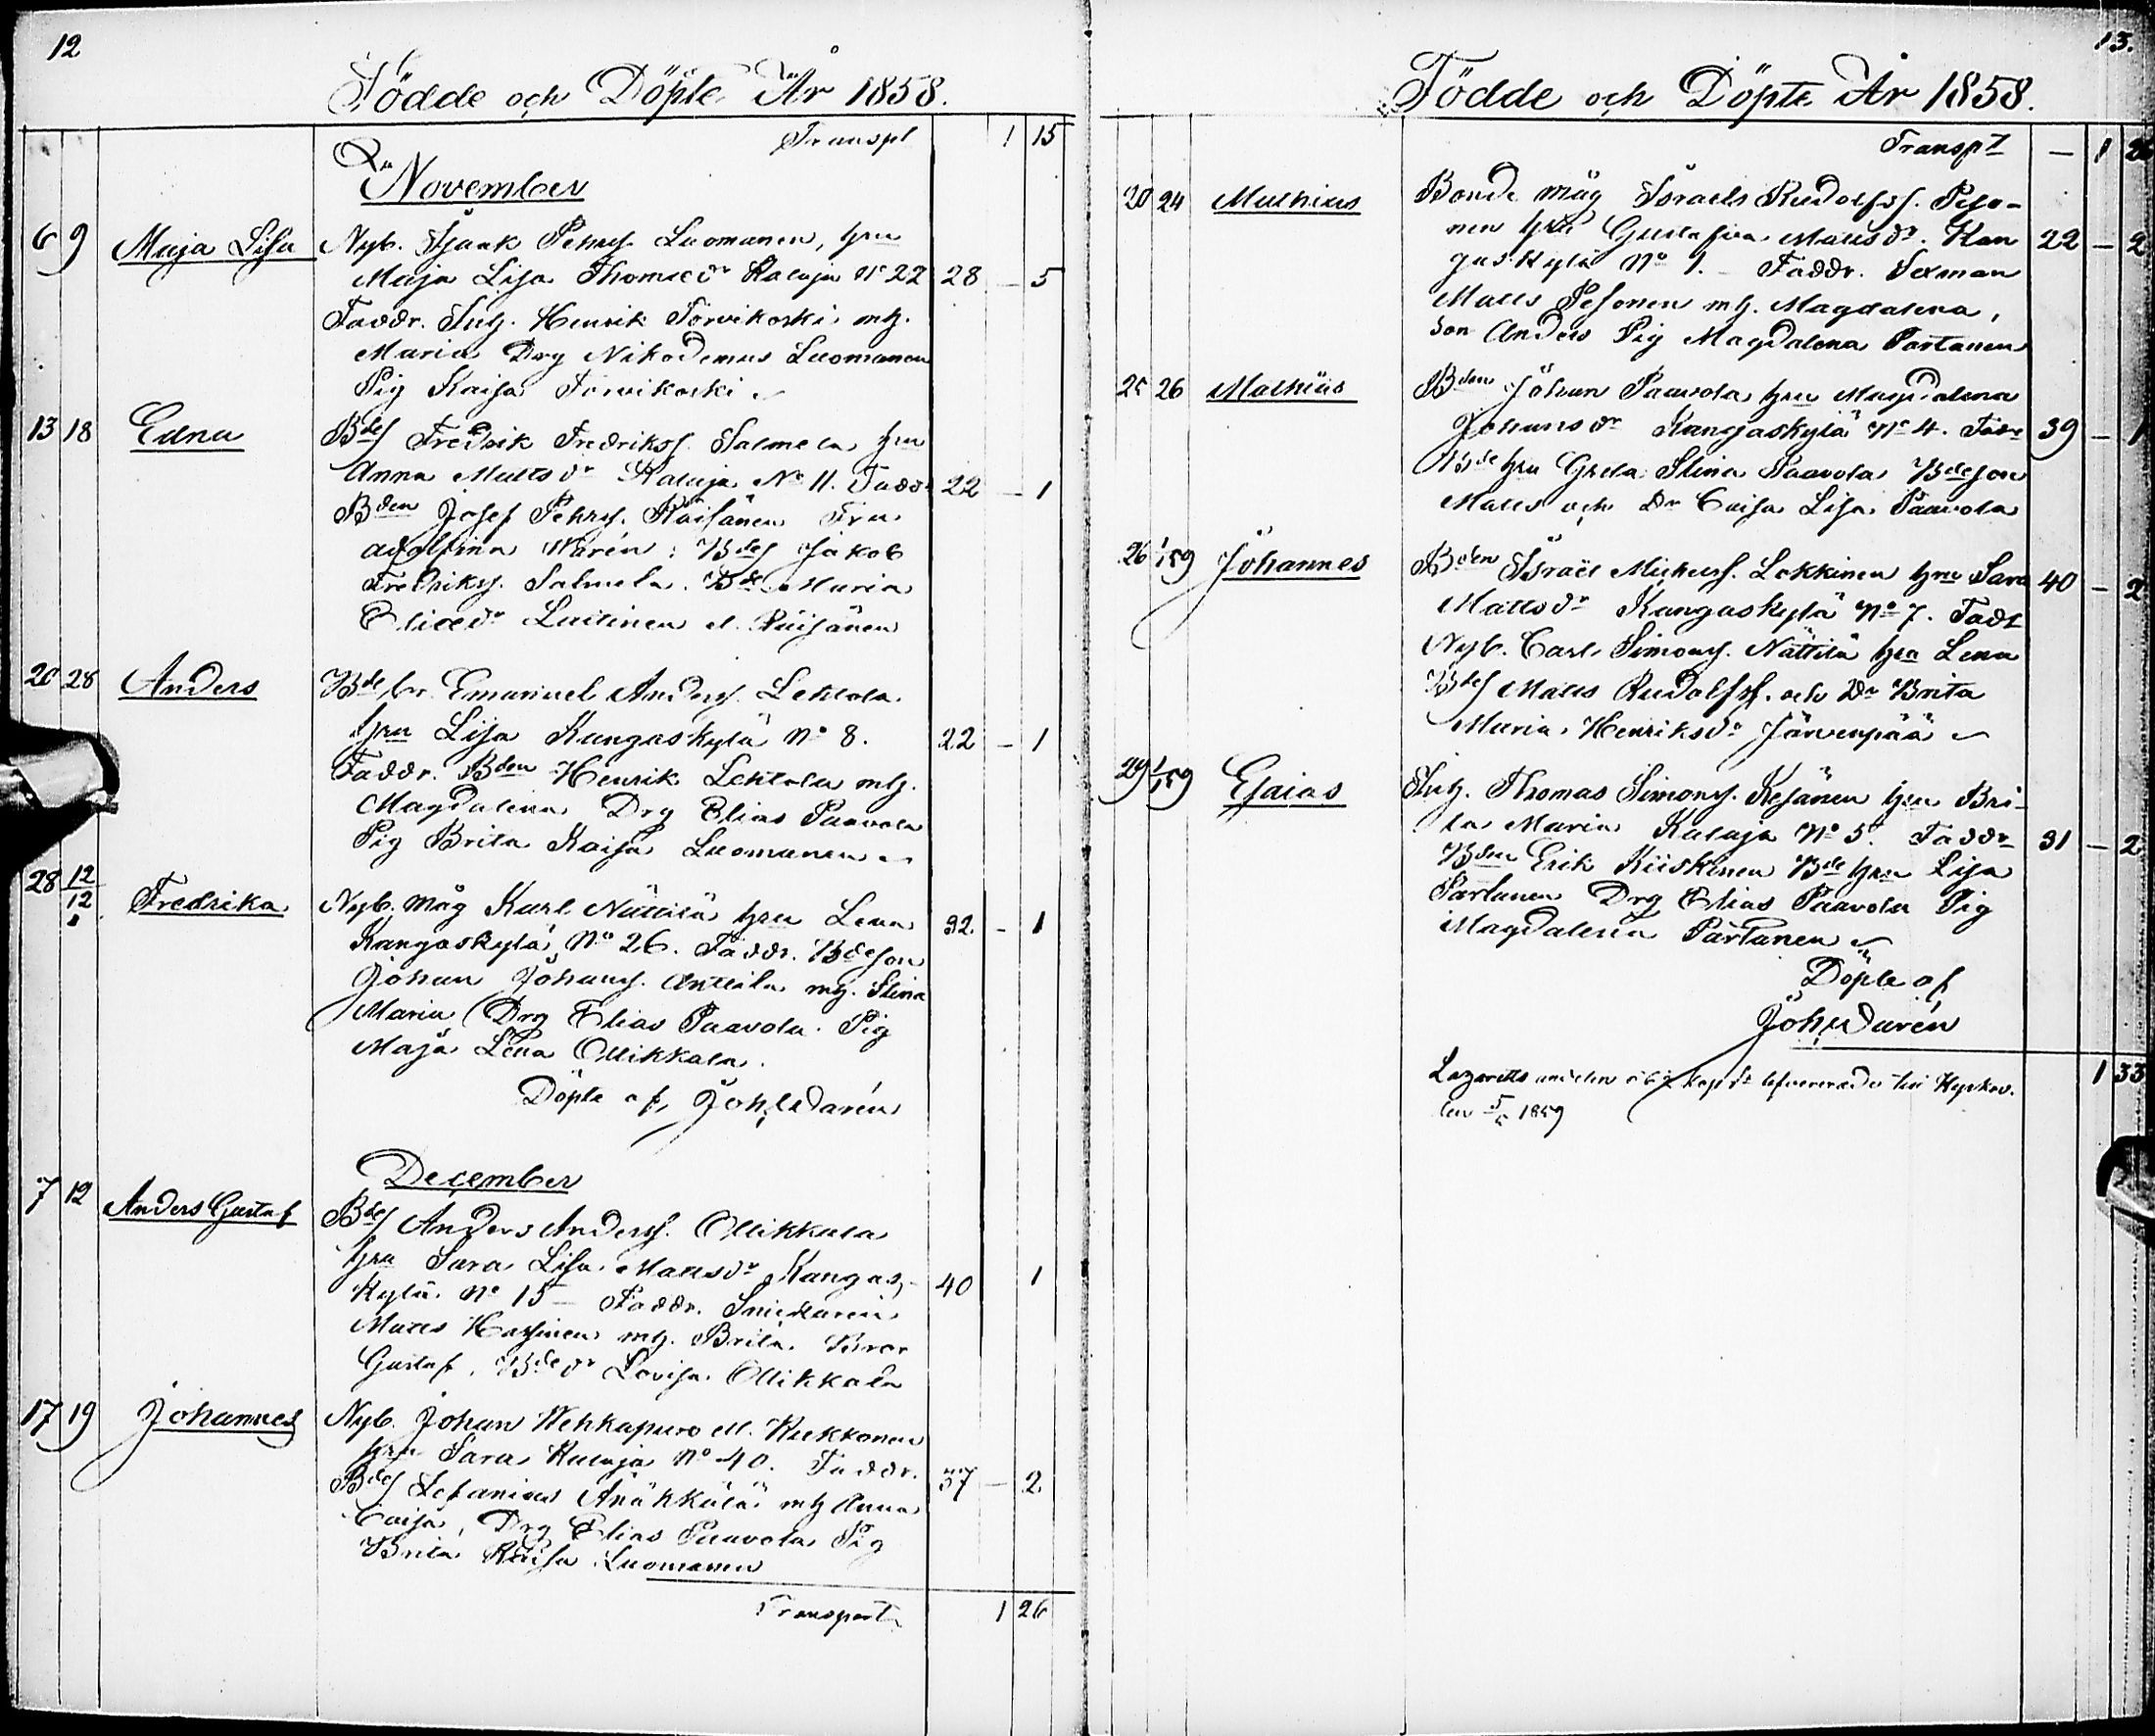 12
Födde och Döpte År 1858.
Transpt 1 15
November
6 9 Maja Lisa Nyb. Isaak Pehrss. Luomanen, hru
Maja Lisa Thomædr Kaluja No 22 28 – 5
Faddr. Inh. Henrik Torvikoski mh.
Maria Drg Nikodemus Luomanen
Pig Kaisa Torvikoski
13 18 Edna Bdes Fredrik Fredrikss. Salmela hru
Anna Mattsdr Kaluja No 11. Faddr 22 – 1
Bden Josef Pehrss. Räisänen Fru
Adolfina Warén: Bdes Jakob
Fredrikss. Salmela. Bde Maria
Eliædr Laitinen el. Räisänen
20 28 Anders Bde br. Emanuel Anderss. Lehtola
hru Lisa Kangaskylä No 8. 22 – 1
Faddr. Bden Henrik Lehtola mh.
Magdalena Drg Elias Paavola
Pig Brita Kaisa Luomanen
28 12/12 Fredrika Nyb. måg Karl Nättilä hru Lena 32 – 1
Kangaskylä No 26. Faddr. Bdeson
Johan Johanss. Anttila mh. Stina
Maria Drg Elias Paavola. Pig
Maja Lena Ollikkala.
Döpte af, Joh. Warén
December
7 12 Anders Gustaf Bdes Anders Anderss. Ollikkala
hru Sara Lisa Mattsdr Kangas-
kylä No 15 – Faddr. Snickaren 40 1
Matts Hassinen mh. Brita. Bror
Gustaf, Bde dr Lovisa Ollikkala
17 19 Johannes Nyb. Johan Wehkapuro el. Kukkonen
hru Sara Kaluja No 40. Faddr. 37 – 2
Bdes Stefanius Änäkkälä mh Anna
Caisa, Drg Elias Paavola Pig
Brita Kaisa Luomanen
Transport 1 26
13.
Födde och Döpte År 1858.
Transpt – 1 26
20 24 Mathias Bonde måg Israels Rudolfss. Peso-
nen hru Gustafva Mattsdr. Kan 22 – 2
gaskylä No 1. – Faddr. Sexman
Matts Pesonen mh. Magdalena,
son Anders Pig Magdalena Partanen
25 26 Mathias Bden Johan Paavola hru Magdalena
Johansdr Kangaskylä No 4. Faddr 39 – 1
Bde hru Greta Stina Paavola Bdeson
Matts och Dr Caisa Lisa Paavola
26 1/1 59 Johannes Bden Israel Michelss. Lokkinen hru Sara 40 – 2
Mattsdr Kangaskylä No 7. Faddr
Nyb. Carl Simonss. Nättilä hru Lena
Bdes Matts Rudolfss. och Dr Brita
Maria Henriksdr Järvenpää
29 1/1 59 Esaias Inh. Thomas Simonss. Kesänen hru Bri-
ta Maria Kaluja No 5. Faddr 31 – 2
Bden Erik Kiiskinen Bde hru Lisa
Partanen Drg Elias Paavola Pig
Magdalena Partanen
Döpte af
Joh. Warén
Lazaretts till Kyrkov. 1 33
den 1859